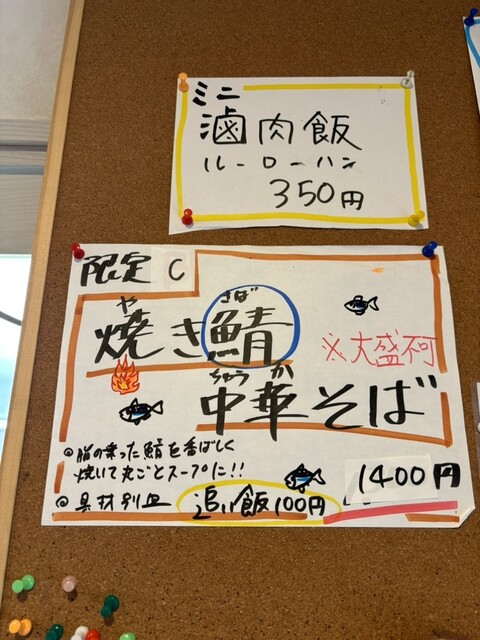 ミニ
滷肉飯
ルーローハン
350円
限定 C
や さば
焼き鯖
※大盛不可
ちゅう か
中華そば
◎脂の乗った鯖を香ばしく
焼いて丸ごとスープに!!
1400円
◎具材別皿 追い飯100円